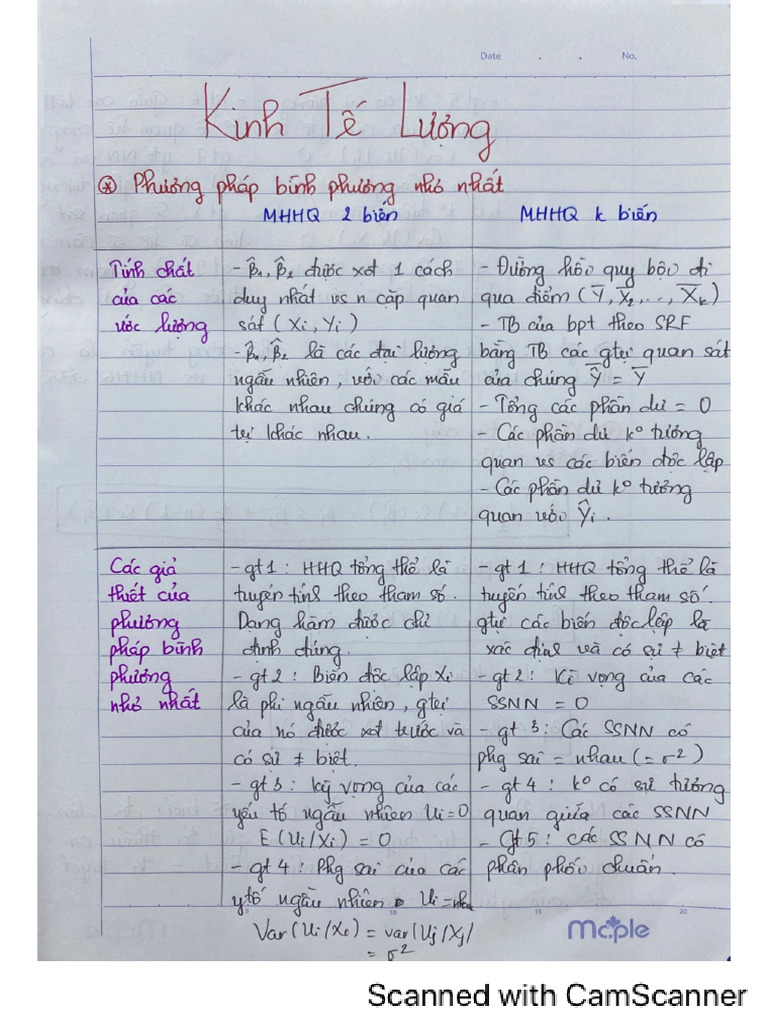 Date . . No.
Kinh Tế Lượng
⊛ Phương pháp bình phương nhỏ nhất
MHHQ 2 biến
MHHQ k biến
Tính chất
của các
ước lượng
- β̂1, β̂2 được xđt 1 cách
duy nhất vs n cặp quan
sát (Xi, Yi)
- β̂1, β̂2 là các đại lượng
ngẫu nhiên, với các mẫu
khác nhau chúng có giá
trị khác nhau.
- Đường hồi quy bội đi
qua điểm (Y̅, X̅2, ..., X̅k)
- TB của bpt theo SRF
bằng TB các gtrị quan sát
của chúng Ŷ̅ = Y̅
- Tổng các phần dư = 0
- Các phần dư k° tương
quan vs các biến độc lập
- Các phần dư k° tương
quan với Ŷi.
Các giả
thiết của
phương
pháp bình
phương
nhỏ nhất
- gt 1 : HHQ tổng thể là
tuyến tính theo tham số.
Dạng hàm được chỉ
định đúng.
- gt 2 : Biến độc lập Xi
là phi ngẫu nhiên, gtrị
của nó được xđt trước và
có sự ≠ biệt.
- gt 3 : kỳ vọng của các
yếu tố ngẫu nhiên Ui = 0
E (Ui/Xi) = 0
- gt 4 : Phg sai của các
ytố ngẫu nhiên Ui = nhau
Var (Ui/Xi) = var(Uj/Xj)
= σ²
- gt 1 : HHQ tổng thể là
tuyến tính theo tham số.
gtrị các biến độc lập là
xác định và có sự ≠ biệt
- gt 2 : Kì vọng của các
SSNN = 0
- gt 3 : Các SSNN có
phg sai = nhau (= σ²)
- gt 4 : k° có sự tương
quan giữa các SSNN
- Gt 5 : các SSNN có
phân phối chuẩn.
5 10 15 20
Mc.ple
Scanned with CamScanner